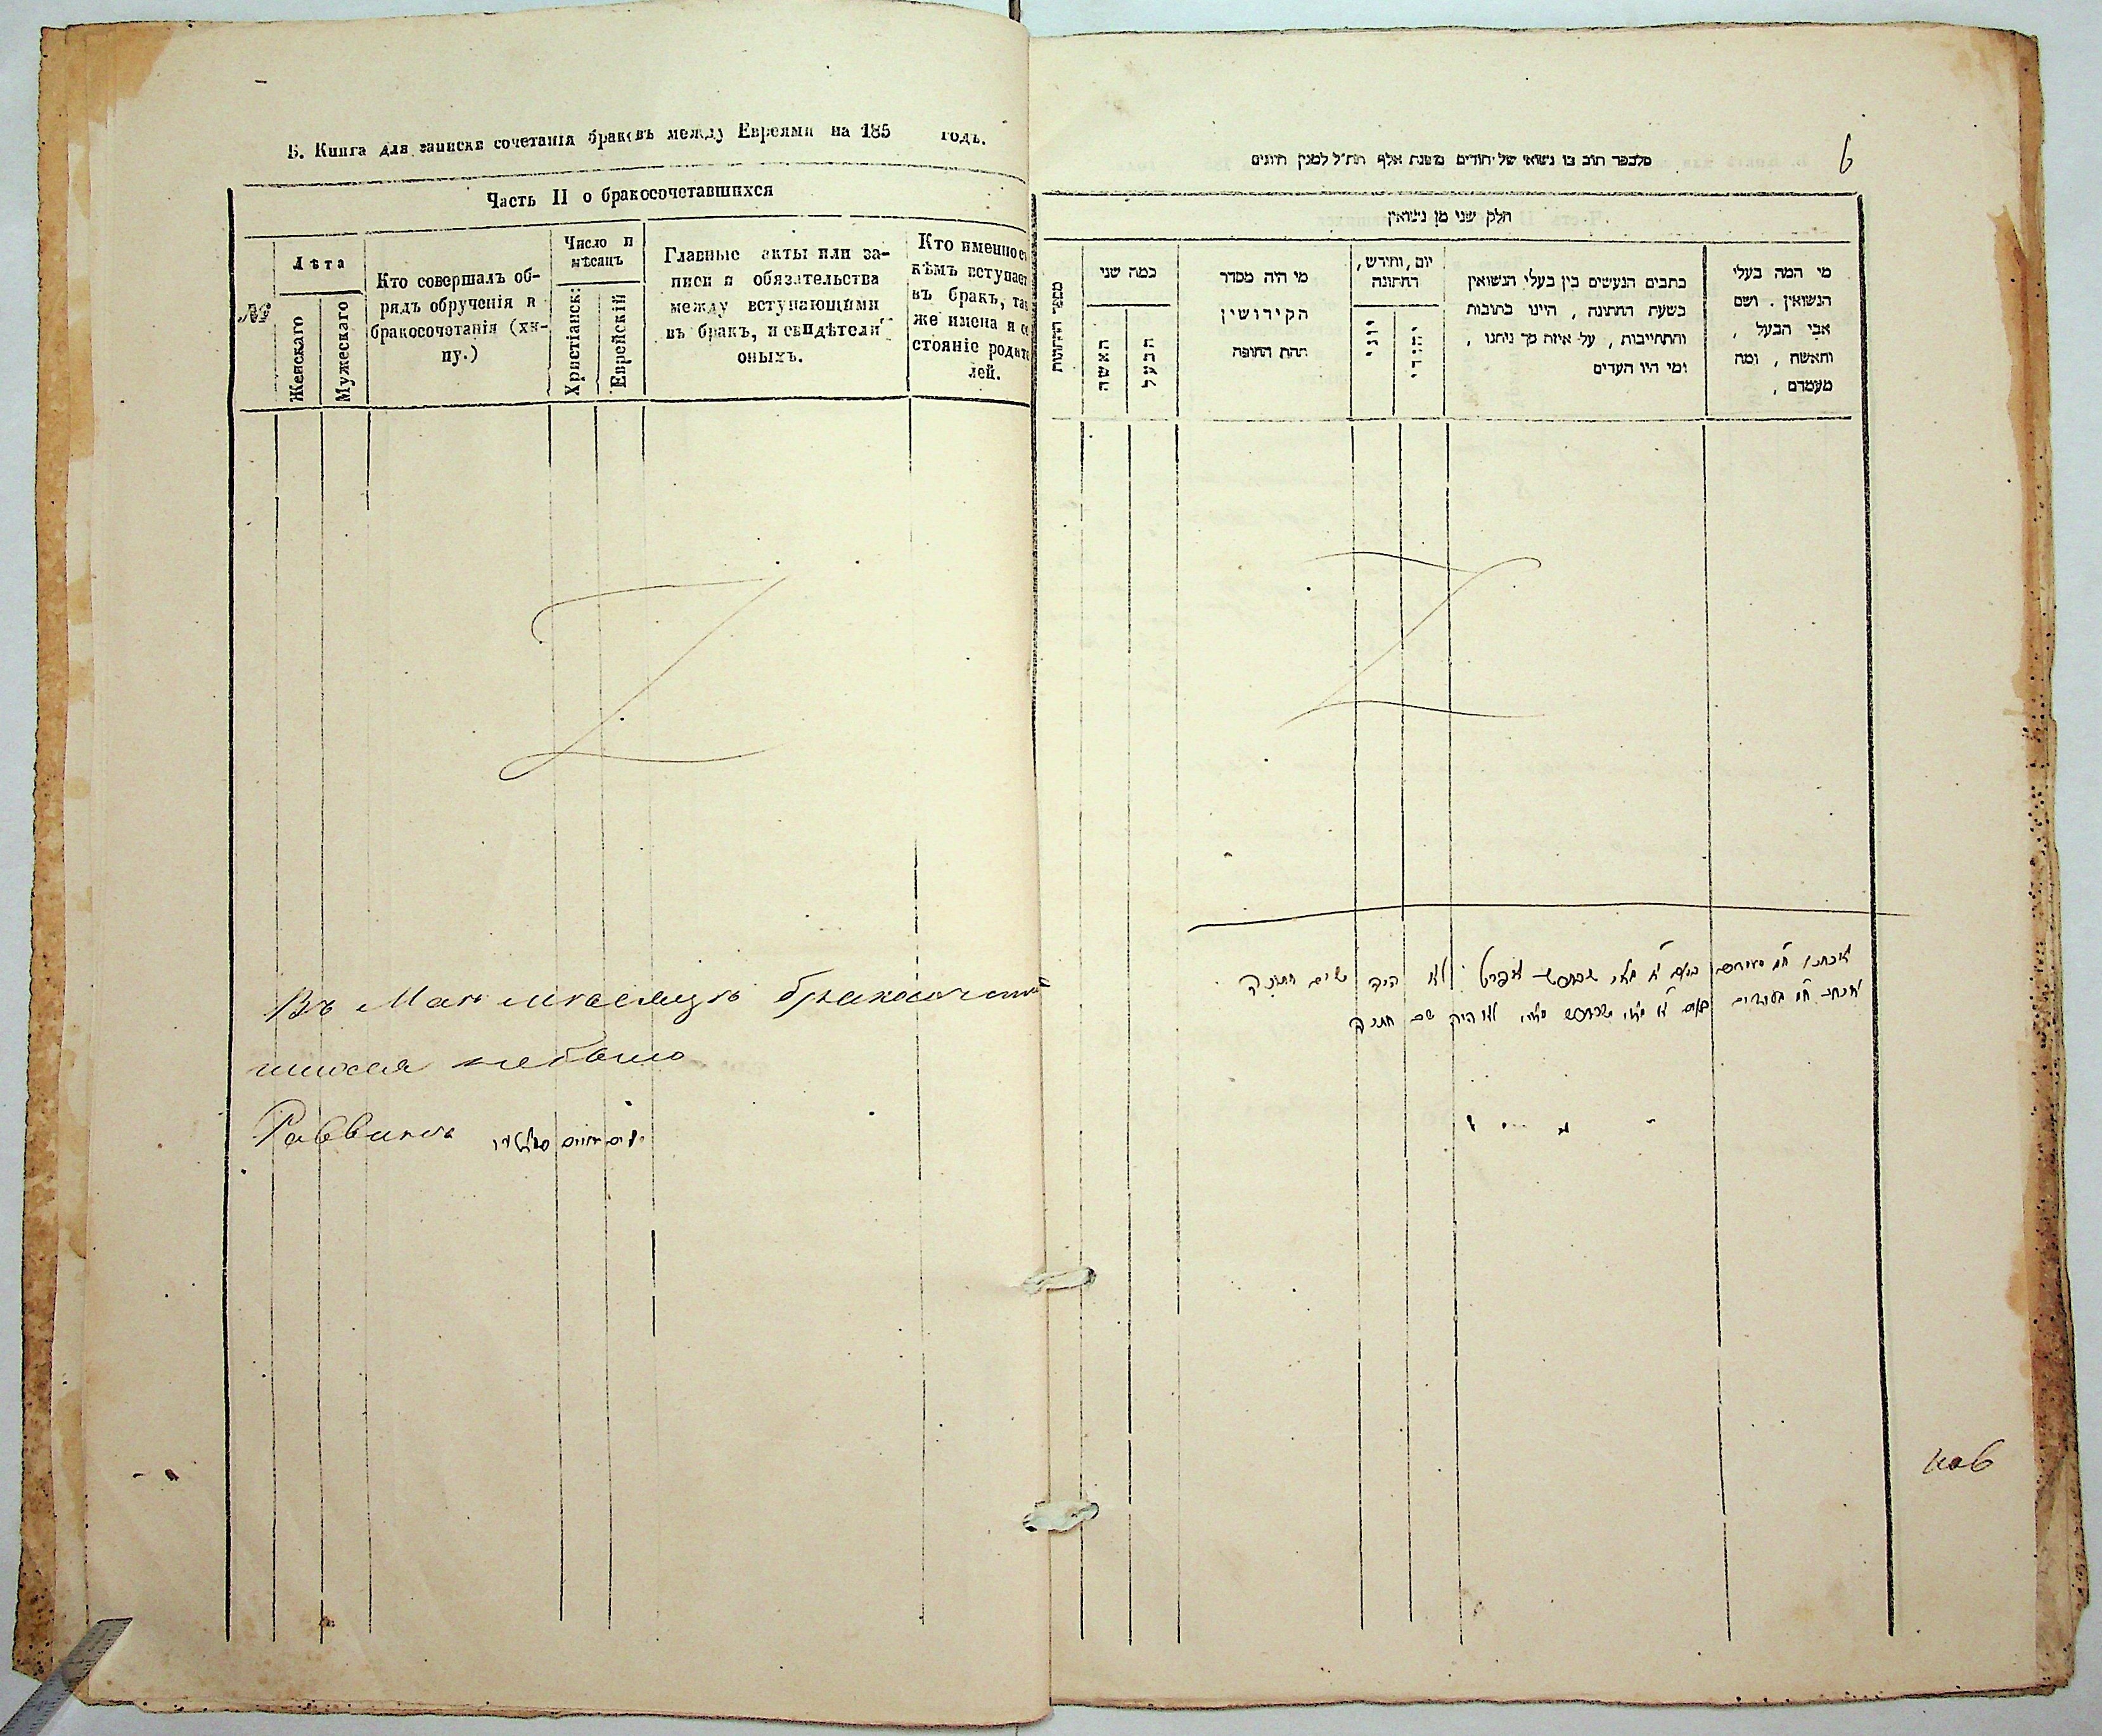 Б. Книга для записки сочетанія браковъ между Евреями на 185 годъ.
Часть II о бракосочетавшихся
№
Лѣта
Женскаго
Мужескаго
Кто совершалъ об-
рядъ обрученія и
бракосочетанія (ху-
пу.)
Число и
мѣсяцъ
Христіанск:
Еврейскій
Главные акты или за-
писи и обязательства
между вступающими
въ бракъ, и свидѣтели
оныхъ.
Кто именно с
кѣмъ вступает
въ бракъ, так
же имена и со
стояніе родите
лей.
Въ Маи мѣсяцѣ бракосочета
шихся небыло
Раввинъ
6
נשואי של יהודים משנת אלף תת״ל למנין היונים
חלק שני מן נישואין
מי המה בעלי
הנשואין . ושם
אבי הבעל ,
והאשה , ומה
מעמדם ,
כתבים הנעשים בין בעלי הנשואין
בשעת החתונה , היינו כתובות
והתחייבות , על איזה סך ניתנו ,
ומי היו העדים
יום, וחודש,
החתונה
יהודי
יוני
מי היה מסדר
הקידושין
תחת החופה
כמה שני
הבעל
האשה
לא היה שום חתונה
לא היה שם חתונה